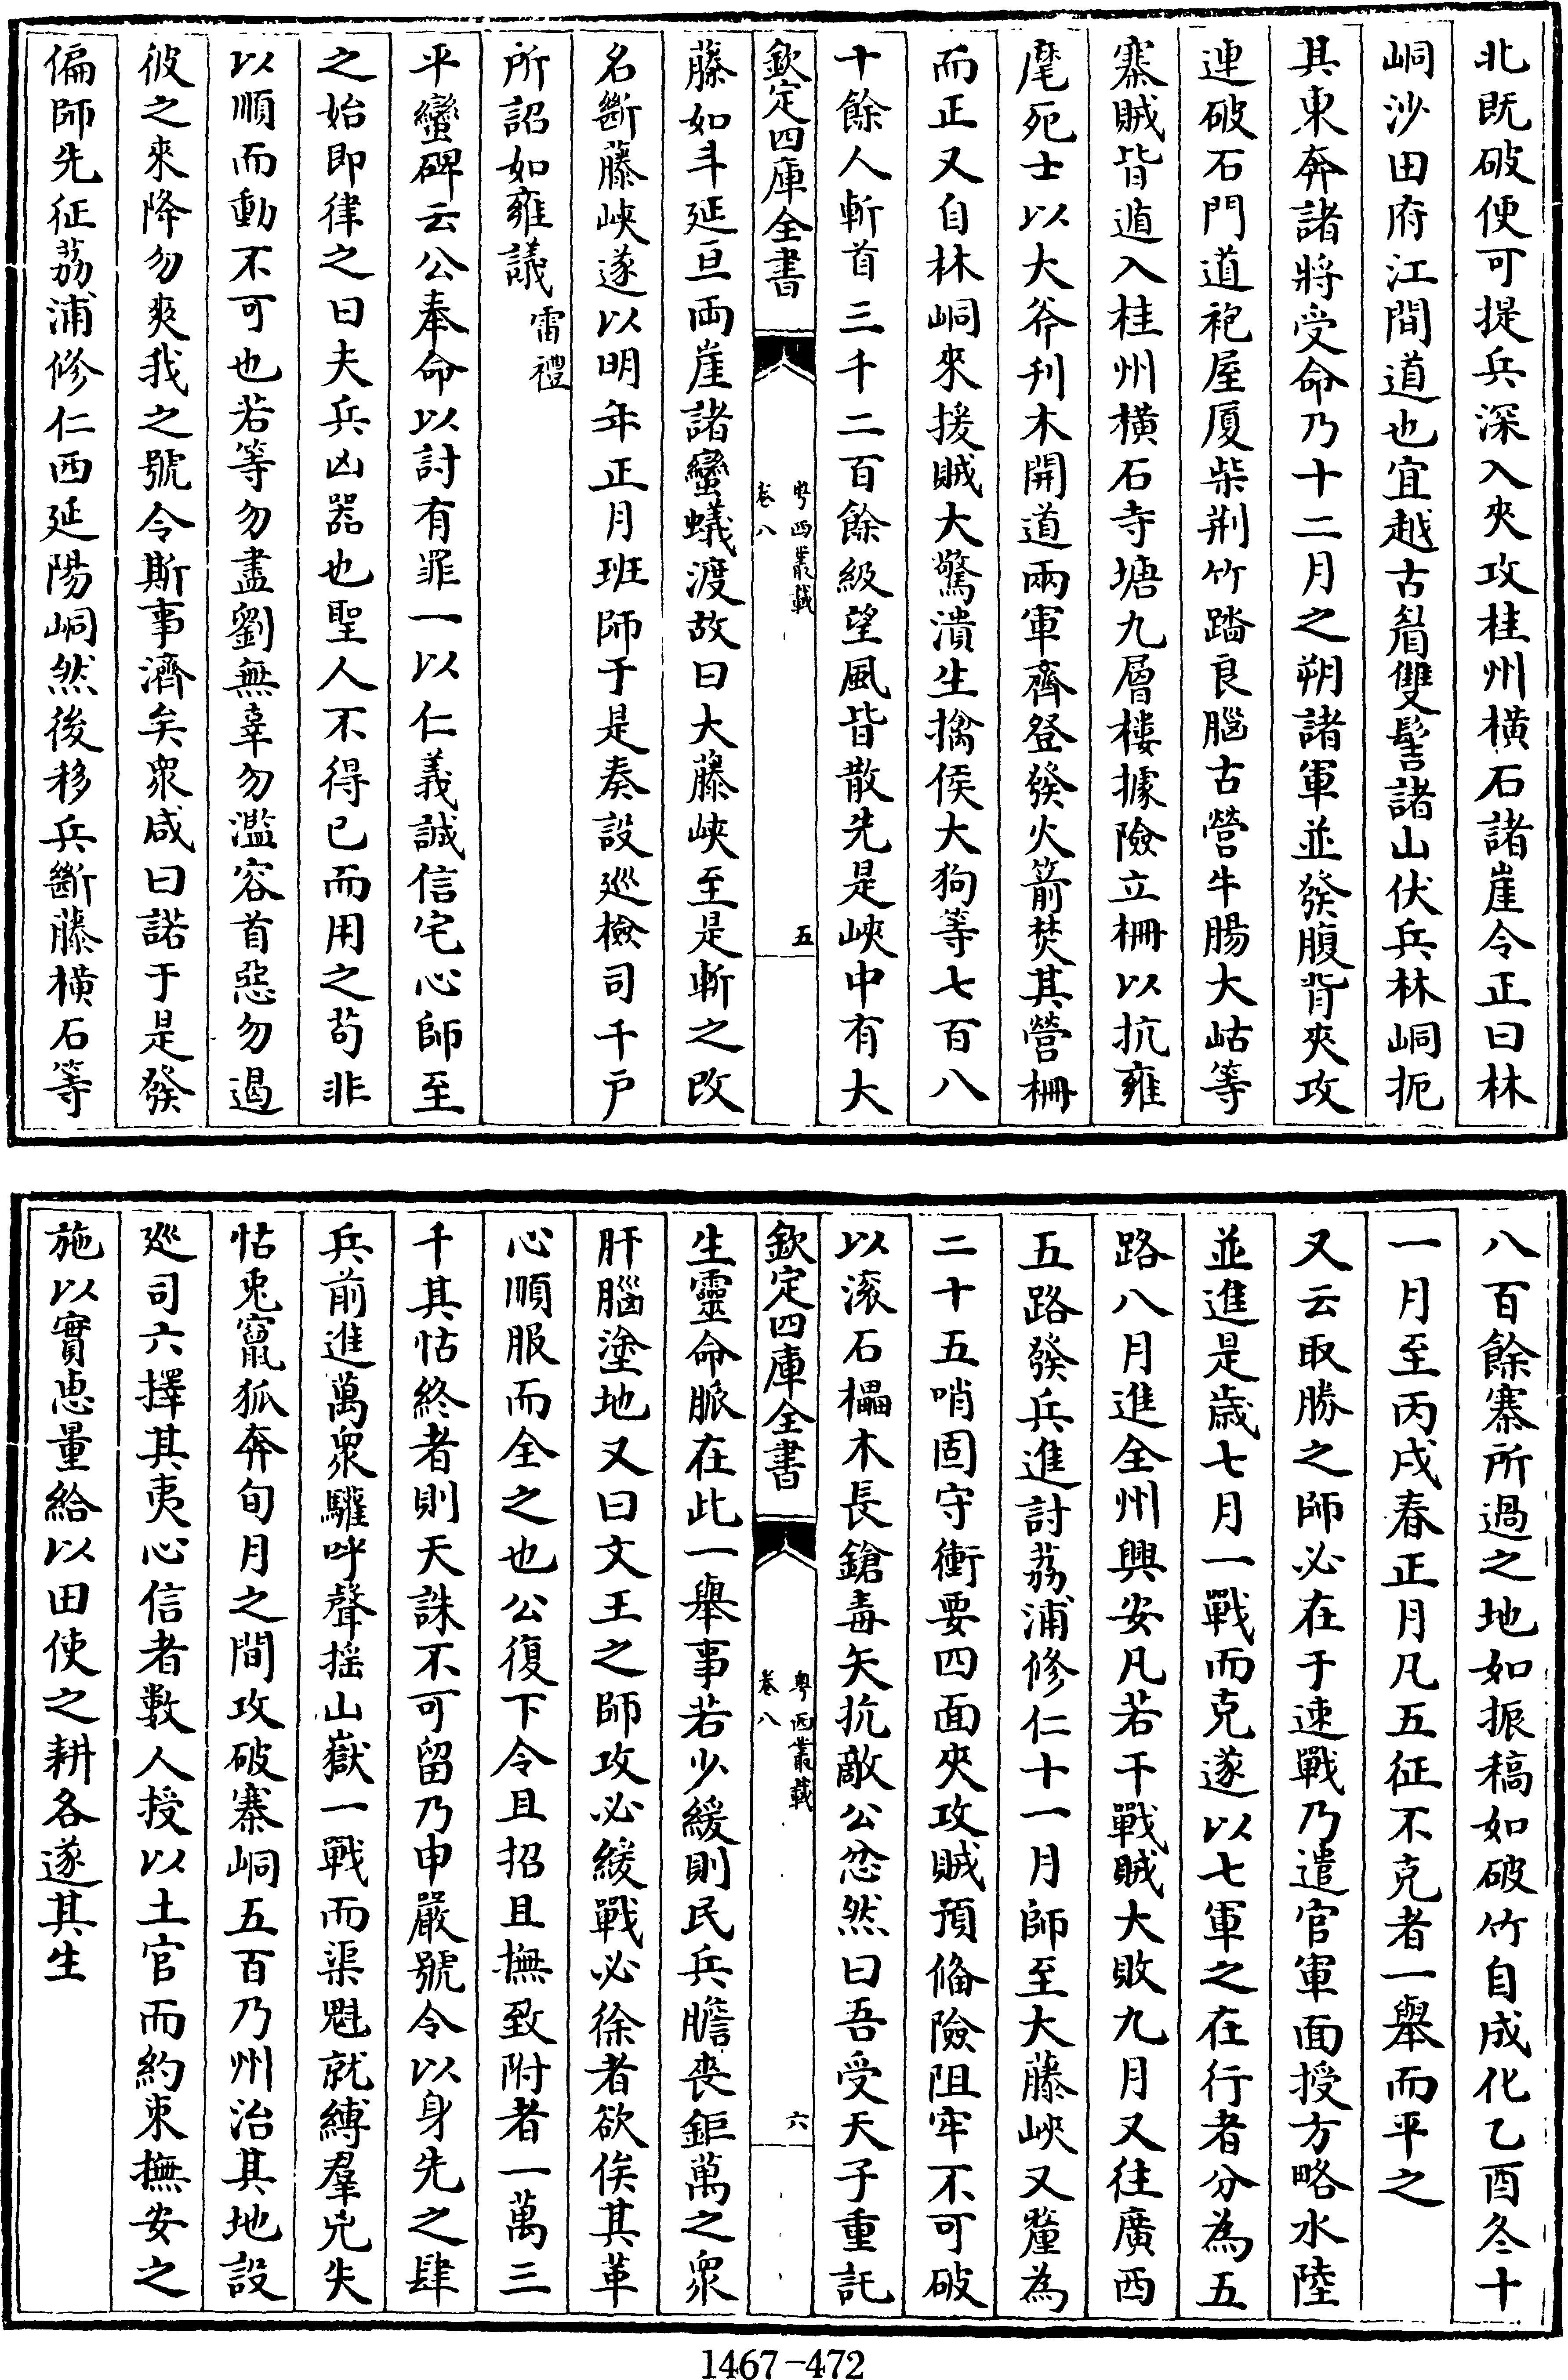 北既破便可提兵深入夾攻桂州橫石諸崖令正曰林
峒沙田府江間道也宜越古眉雙髻諸山伏兵林峒扼
其東奔諸將受命乃十二月之朔諸軍並發腹背夾攻
連破石門道袍屋厦柴荆竹踏良腦古營牛腸大岵等
寨賊皆遁入桂州橫石寺塘九層樓據險立柵以抗雍
麾死士以大斧刋木開道兩軍齊登發火箭焚其營柵
而正又自林峒來援賊大驚潰生擒侯大狗等七百八
十餘人斬首三千二百餘級望風皆散先是峽中有大
欽定四庫全書
粤西叢載
卷八
五
藤如斗延亘両崖諸蠻蟻渡故曰大藤峽至是斬之改
名斷藤峽遂以明年正月班師于是奏設廵檢司千戶
所詔如雍議 雷禮
平蠻碑云公奉命以討有罪一以仁義誠信宅心師至
之始即律之曰夫兵凶器也聖人不得已而用之苟非
以順而動不可也若等勿盡劉無辜勿濫容首惡勿遏
彼之來降勿爽我之號令斯事濟矣衆咸曰諾于是發
偏師先征荔浦修仁西延陽峒然後移兵斷藤橫石等
八百餘寨所過之地如振稿如破竹自成化乙酉冬十
一月至丙戌春正月凡五征不克者一舉而平之
又云取勝之師必在于速戰乃遣官軍面授方略水陸
並進是歲七月一戰而克遂以七軍之在行者分為五
路八月進全州興安凡若干戰賊大敗九月又往廣西
五路發兵進討荔浦修仁十一月師至大藤峽又釐為
二十五哨固守衝要四面夾攻賊預偹險阻牢不可破
以滚石櫑木長鎗毒矢抗敵公忿然曰吾受天子重託
欽定四庫全書
粤西叢載
卷八
六
生靈命脈在此一舉事若少緩則民兵膽喪鉅萬之衆
肝腦塗地又曰文王之師攻必緩戰必徐者欲俟其革
心順服而全之也公復下令且招且撫致附者一萬三
千其怙終者則天誅不可留乃申嚴號令以身先之肆
兵前進萬衆驩呼聲摇山嶽一戰而渠魁就縛羣兇失
怙兎竄狐奔旬月之間攻破寨峒五百乃州治其地設
廵司六擇其夷心信者數人授以土官而約束撫安之
施以實惠量給以田使之耕各遂其生
1467-472